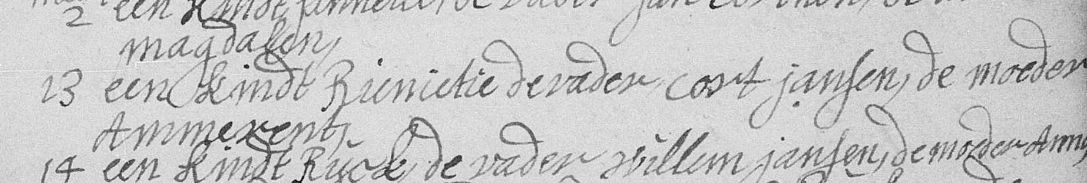 2 een kindt de vader jan
magdalen,
13 een kindt Rienietie de vader, Cort jansen, de moeder
Ammerent,
14 een kindt Ryck, de vader willem jansen, de moeder Anny